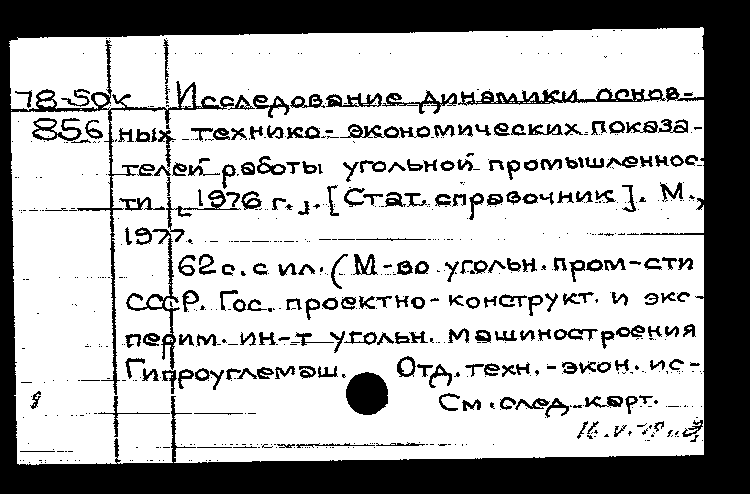 78-50к Исследование динамики основ-
856 ных технико-экономических показа-
телей работы угольной промышленнос-
ти. [1976 г.]. [Стат. справочник]. М.,
1977.
62 с. с ил. (М-во угольн. пром-сти
СССР. Гос. проектно-конструкт. и экс-
перим. ин-т угольн. машиностроения
Гипроуглемаш. Отд. техн.-экон. ис-
См. след. карт.
16.V.78